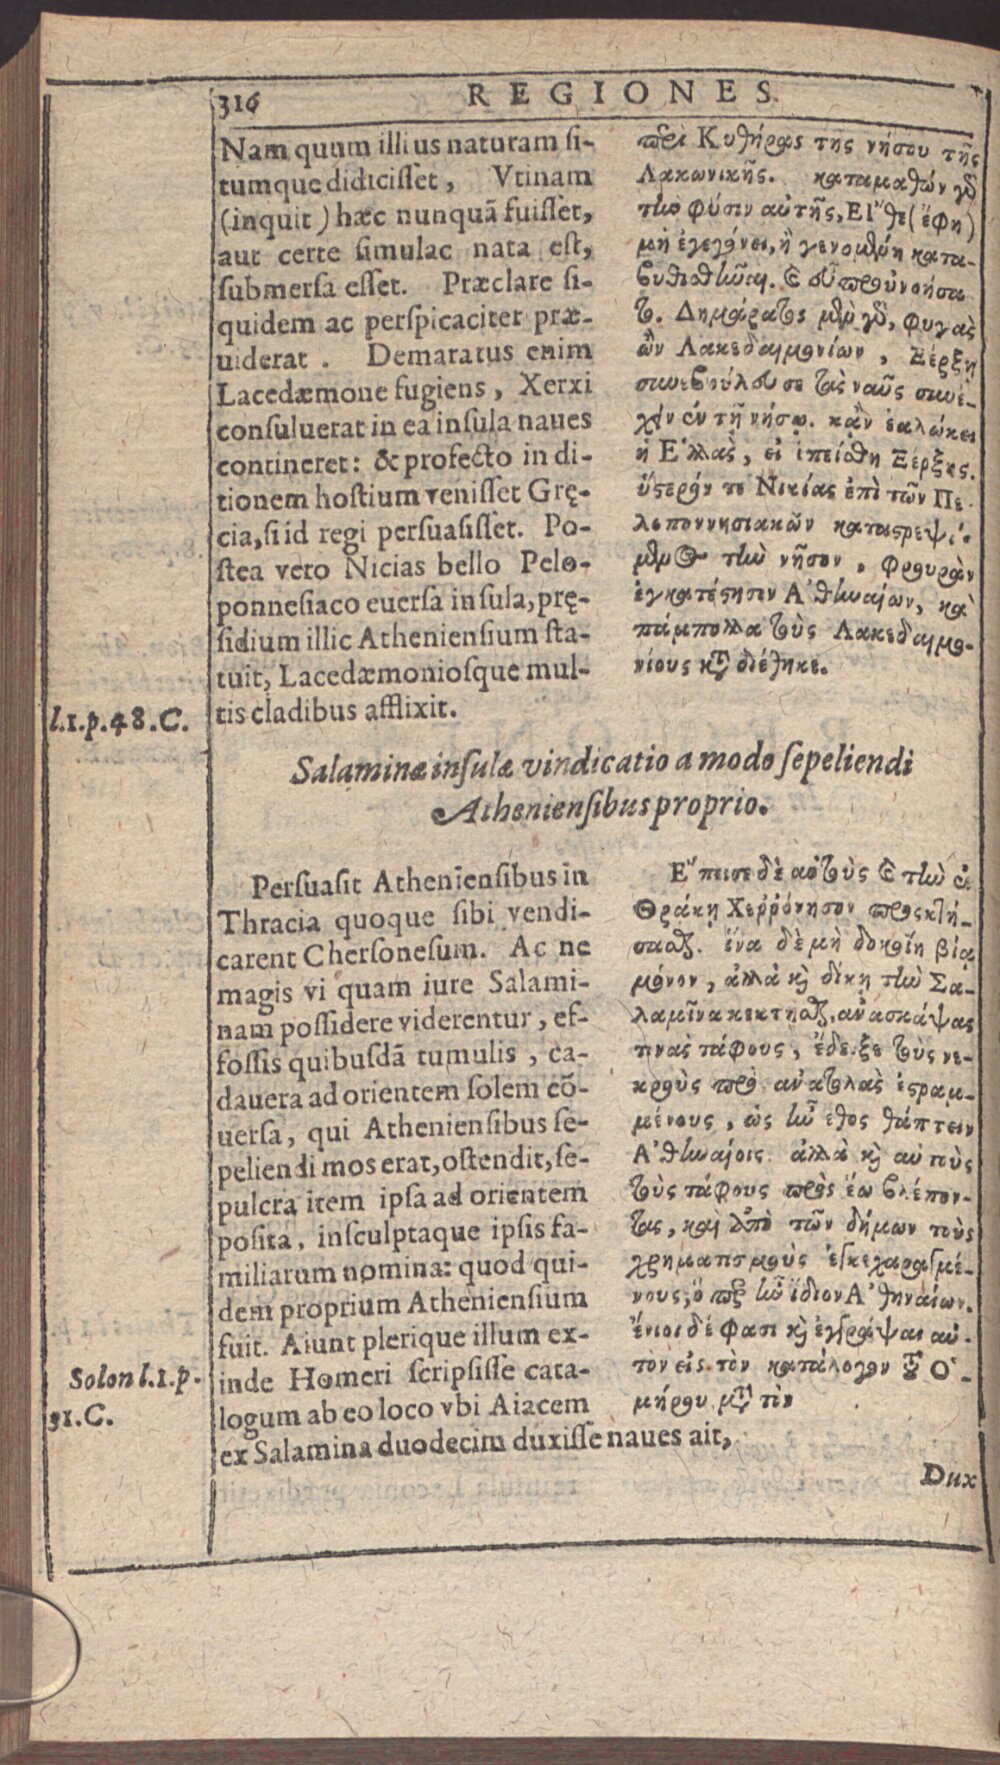 316
REGIONES.
Nam quum illius naturam si-
tumque didicisset, Vtinam
(inquit) hæc nunquã fuisset,
aut certe simulac nata est,
submersa esset. Præclare si-
quidem ac perspicaciter præ-
uiderat. Demaratus enim
Lacedæmone fugiens, Xerxi
consuluerat in ea insula naues
contineret: & profecto in di-
tionem hostium venisset Gręcia,
cia, si id regi persuasisset. Po-
stea vero Nicias bello Pelo-
ponnesiaco euersa insula, prę-
sidium illic Atheniensium sta-
tuit, Lacedæmoniosque mul-
tis cladibus afflixit.
περὶ Κυθήρας της νήσου τῆς
Λακωνικῆς. καταμαθών γδ
τὴν φύσιν αὐτῆς, ΕΙ῎θε (ἔφη)
μὴ ἐγεγόνει, ἢ γενομένη κατα-
βυθισθῆναι. Ϗ οὖ προὐνοήσα
το. Δημάρατος μὲν γδ, φυγὰς
ὢν Λακεδαιμονίων, Ξέρξῃ
συνεβούλουσε τὰς ναῦς συνέ-
χειν ἐν τῇ νήσῳ. κἂν ἑαλώκει
ἡ Ε῾λλὰς, εἰ ἐπείσθη Ξέρξης.
ὕστερόν τε Νικίας ἐπὶ τῶν Πε-
λοποννησιακῶν καταστρεψά-
μενος τὴν νῆσον, φρουρὰν
ἐγκατέστησεν Α᾿θηναίων, κὰ
πάμπολλα τοὺς Λακεδαιμο-
νίους κακὰ διέθηκε.
l.1.p.48.C.
Salaminæ insulæ vindicatio a modo sepeliendi
Atheniensibus proprio.
Persuasit Atheniensibus in
Thracia quoque sibi vendi-
carent Chersonesum. Ac ne
magis vi quam iure Salami-
nam possidere viderentur, ef-
fossis quibusdã tumulis, ca-
dauera ad orientem solem cõ-
uersa, qui Atheniensibus se-
peliendi mos erat, ostendit, se-
pulcra item ipsa ad orientem
posita, insculptaque ipsis fa-
miliarum nomina: quod qui-
dem proprium Atheniensium
fuit. Aiunt plerique illum ex-
inde Homeri scripsisse cata-
logum ab eo loco vbi Aiacem
ex Salamina duodecim duxisse naues ait,
Ε῎πεισε δὲ αὐτοὺς ϗ τὴν ἐν
Θράκῃ Χεῤῥόνησον προσκτή-
σασθαι. ἵνα δὲ μὴ δοκοίη βίᾳ
μόνον, ἀλλὰ κὶ δίκῃ τὴν Σα-
λαμῖνα κεκτῆσθαι, ἀνασκάψας
τινας τάφους, ἔδειξε τοὺς νε-
κροὺς πρὸς ἀνατολὰς ἐστραμ-
μένους, ὡς ἦν ἔθος θάπτειν
Α᾿θηναίοις. ἀλλὰ κὶ αὐτοὺς
τοὺς τάφους πρὸς ἕω βλέπον-
τας, καὶ ἀπὸ τῶν δήμων τοὺς
χρηματισμοὺς ἐγκεχαραγμέ-
νους, ὅπερ ἦν ἴδιον Α᾿θηναίων.
ἔνιοι δέ φασι κὶ ἐγγράψαι αὐ-
τὸν εἰς τὸν κατάλογον τοῦ Ο῾-
μήρου μετὰ τὸν
Solon l.1.p.
31.C.
Dux